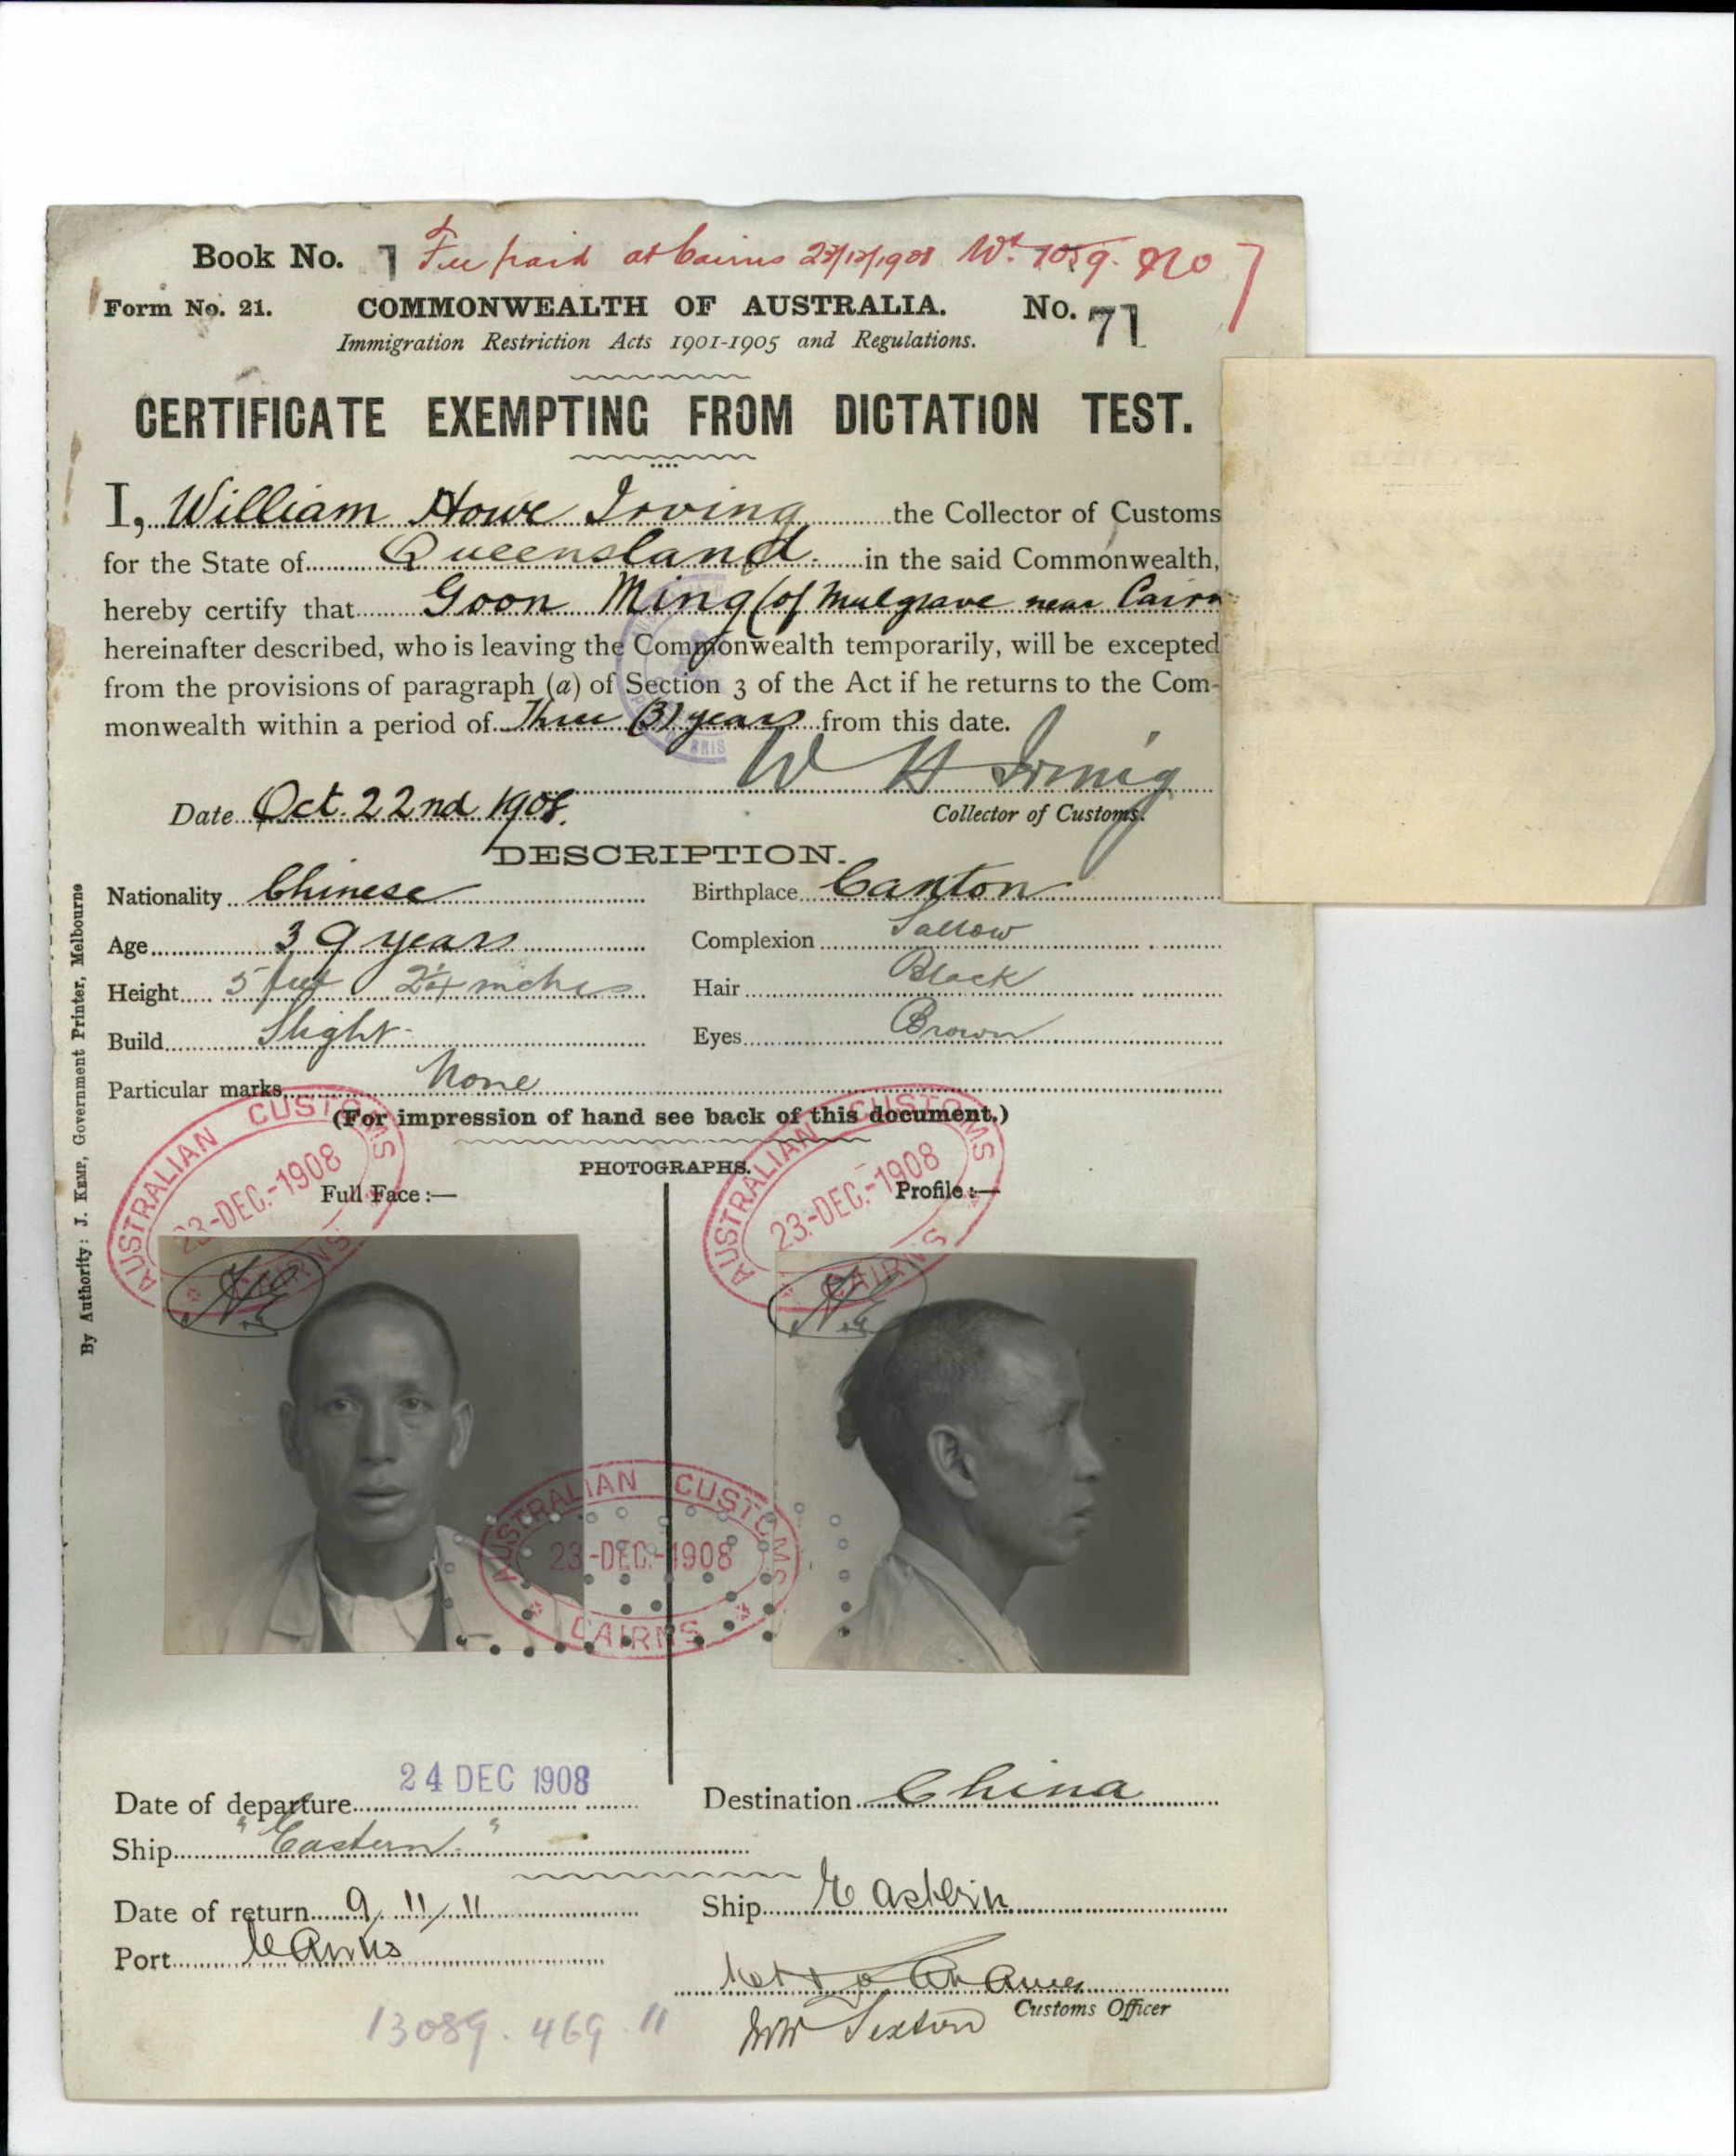 Book No. 7 Fee paid at Cairns 23/12/1908 No 7
Form No. 21. COMMONWEALTH OF AUSTRALIA. No. 71
Immigration Restriction Acts 1901-1905 and Regulations.
CERTIFICATE EXEMPTING FROM DICTATION TEST.
I, William Howe Irving the Collector of Customs
for the State of Queensland in the said Commonwealth,
hereby certify that Goon Ming (of Mulgrave near Cairn
hereinafter described, who is leaving the Commonwealth temporarily, will be excepted
from the provisions of paragraph (a) of Section 3 of the Act if he returns to the Com-
monwealth within a period of Three (3) years from this date.
W H Irving
Date Oct. 22nd 1908. Collector of Customs.
DESCRIPTION.
Nationality Chinese Birthplace Canton
Age 39 years Complexion Sallow
Height 5 feet 2¼ inches Hair Black
Build Slight Eyes Brown
Particular marks None
(For impression of hand see back of this document.)
PHOTOGRAPHS.
Full Face :— Profile :—
AUSTRALIAN CUSTOMS
23-DEC.-1908
CAIRNS
AUSTRALIAN CUSTOMS
23-DEC.-1908
CAIRNS
AUSTRALIAN CUSTOMS
23-DEC.-1908
CAIRNS
By Authority: J. KEMP, Government Printer, Melbourne
Date of departure 24 DEC 1908 Destination China
Ship "Eastern"
Date of return 9/11/11 Ship Eastern
Port Cairns
Customs Officer
13089.469.11 Sexton